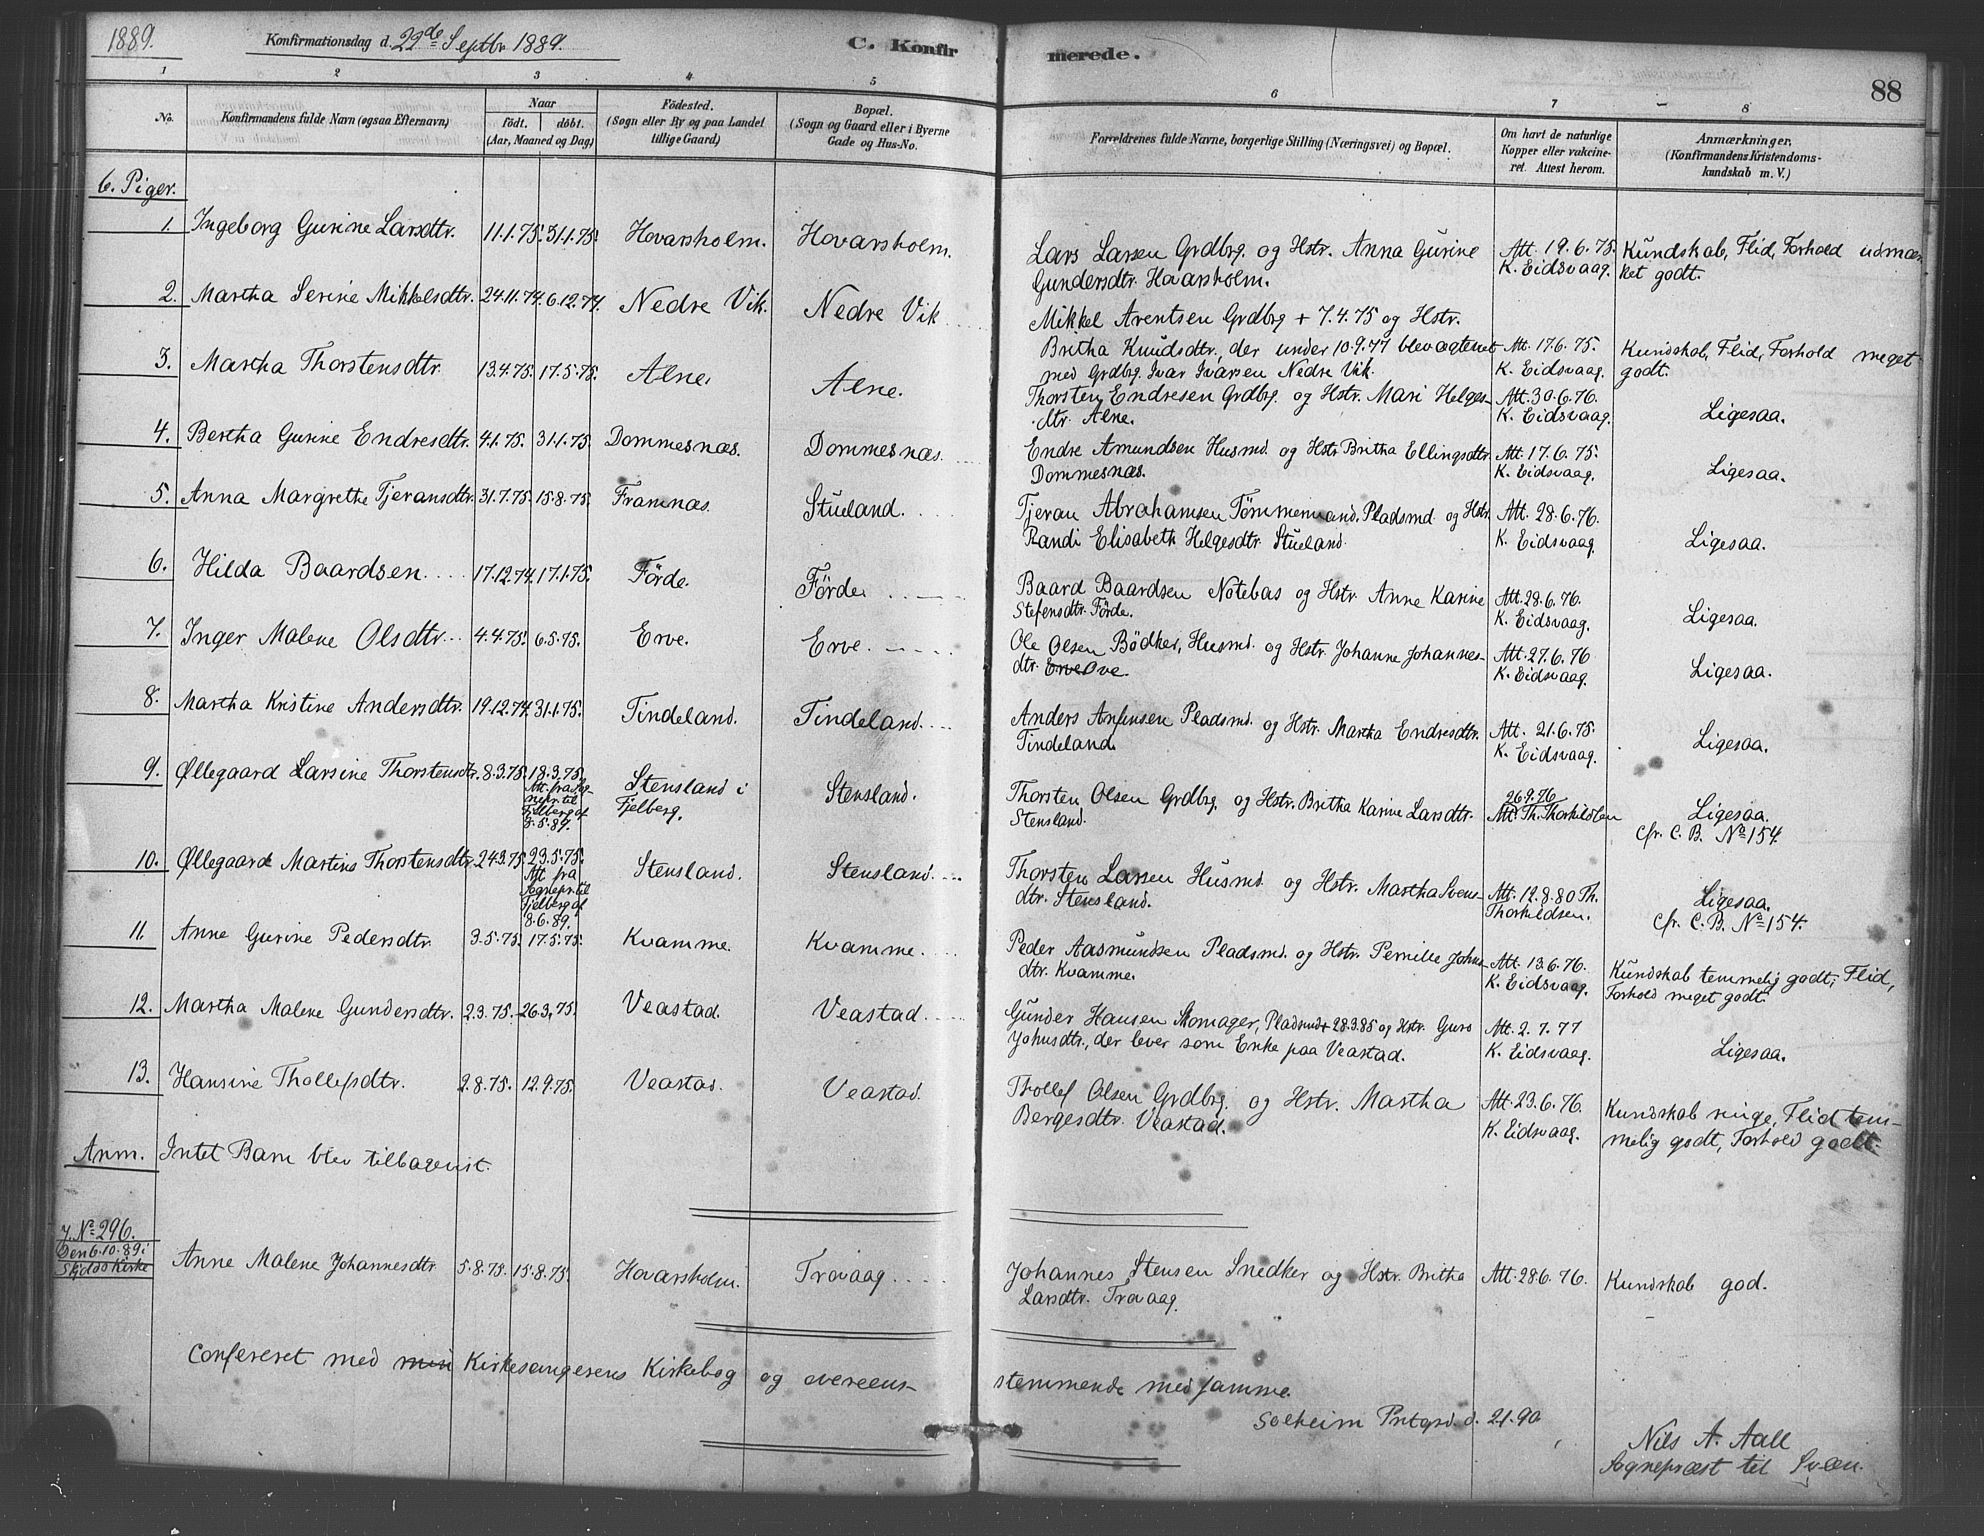 1889. Konfirmationsdag d. 22de Septbr 1889. C. Konfirmerede. 88
1 2 3 4 5 6 7 8
No. Konfirmandens fulde Navn (ogsaa Efternavn) Naar født. døbt. (Aar, Maaned og Dag) Födested. (Sogn eller By og paa Landet tillige Gaard) Bopæl. (Sogn og Gaard eller i Byerne Gade og Hus-No. Forældrenes fulde Navne, borgerlige Stilling (Næringsvei) og Bopæl. Om havt de naturlige Kopper eller vakcineret. Attest herom. Anmærkninger. (Konfirmandens Kristendomskundskab m. V.)
6. Piger.
1. Ingeborg Gurine Larsdtr. 11.1.75. 31.1.75. Hovarsholm. Hovarsholm. Lars Larsen Grdbrg. og Hstr. Anna Gurine Gundersdtr. Hovarsholm. Att. 19.6.75. K. Eidsvaag. Kundskab, Flid, Forhold udmærket godt.
2. Martha Serine Mikkelsdtr. 24.11.74. 6.12.74. Nedre Vik. Nedre Vik Mikkel Arentsen Grdbrg + 7.4.75 og Hstr. Britha Knudsdtr., der under 10.9.77 blev ægteviet med Grdbrg. Ivar Ivarsen Nedre Vik. Att. 17.6.75. K. Eidsvaag. Kundskab, Flid, Forhold meget godt.
3. Martha Thorstensdtr. 13.4.75. 17.5.75. Alne. Alne. Thorsten Endresen Grdbrg. og Hstr. Mari Helgesdtr. Alne. Att. 30.6.76. K. Eidsvaag. Ligesaa.
4. Bertha Gurine Endresdtr. 4.1.75. 31.1.75. Dommesnæs. Dommesnæs. Endre Amundsen Husmd. og Hstr. Britha Ellingsdtr. Dommesnæs. Att. 17.6.75. K. Eidsvaag. Ligesaa.
5. Anna Margrethe Tjeransdtr. 31.7.75. 15.8.75. Framnæs. Stueland. Tjeran Abrahamsen Tømmermand, Pladsmd. og Hstr. Randi Elisabeth Helgesdtr. Stueland. Att. 28.6.76. K. Eidsvaag. Ligesaa.
6. Hilda Baardsen. 17.12.74. 17.1.75. Förde. Förde Baard Baardsen Notebas og Hstr. Anne Karine Stefensdtr. Förde. Att. 28.6.76. K. Eidsvaag. Ligesaa.
7. Inger Malene Olsdtr. 4.4.75. 6.5.75. Erve. Erve. Ole Olsen Bödker, Husmd. og Hstr. Johanne Johannesdtr. Erve Ove. Att. 27.6.76 K. Eidsvaag. Ligesaa.
8. Martha Kristine Andersdtr. 19.12.74. 31.1.75. Tindeland. Tindeland. Anders Anfinsen Pladsmd. og Hstr. Martha Endresdtr. Tindeland. Att. 21.6.75. K. Eidsvaag. Ligesaa.
9. Øllegaard Larsine Thorstensdtr. 8.3.75. 18.3.75. Att. fra Sognepr. til Fjelberg af 8.5.89. Stensland i Fjelberg. Stensland. Thorsten Olsen Grdbrg. og Hstr. Britha Karine Larsdtr. Stensland. 26.9.76 Att. Th. Thorkildsen Ligesaa. Cfr. C. B. No 154.
10. Øllegaard Martine Thorstensdtr. 24.3.75. 23.5.75. Att. fra Sognepr. til Fjelberg af 8.6.89. Stensland. Stensland. Thorsten Larsen Husmd. og Hstr. Martha Svensdtr. Stensland. Att. 12.8.80 Th. Thorkildsen. Ligesaa. Cfr. C. B. No 154.
11. Anne Gurine Pedersdtr. 3.5.75. 17.5.75. Kvamme. Kvamme. Peder Aasmundsen Pladsmd. og Hstr. Pernille Johnsdtr. Kvamme. Att. 13.6.76. K. Eidsvaag. Kundskab temmelig godt, Flid, Forhold meget godt.
12. Martha Malene Gundersdtr. 2.3.75. 26.3.75. Veastad. Veastad. Gunder Hansen Skomager, Pladsmd + 28.3.85 og Hstr. Guro Johnsdtr., der lever som Enke paa Veastad. Att. 2.7.77 K. Eidsvaag. Ligesaa.
13. Hansine Thollefsdtr. 2.8.75. 12.9.75. Veastad. Veastad. Thollef Olsen Grdbrg. og Hstr. Martha Bergesdtr. Veastad. Att. 23.6.76. K. Eidsvaag. Kundskab ringe, Flid temmelig godt, Forhold godt.
Anm. Intet Barn blev tilbagevist.
7. No 296. Den 6.10.89 i Skjold Kirke Anne Malene Johannesdtr 5.8.75. 15.8.75. Hovarsholm. Trovaag. Johannes Stensen Snedker og Hstr. Britha Larsdtr. Trovaag. Att. 28.6.76. Kundskab god.
Confereret med min Kirkesangerens Kirkebog og overeensstemmende med samme.
Solheim Prstgrd. d. 2.1.90
Nils A. Aall
Sognepræst til